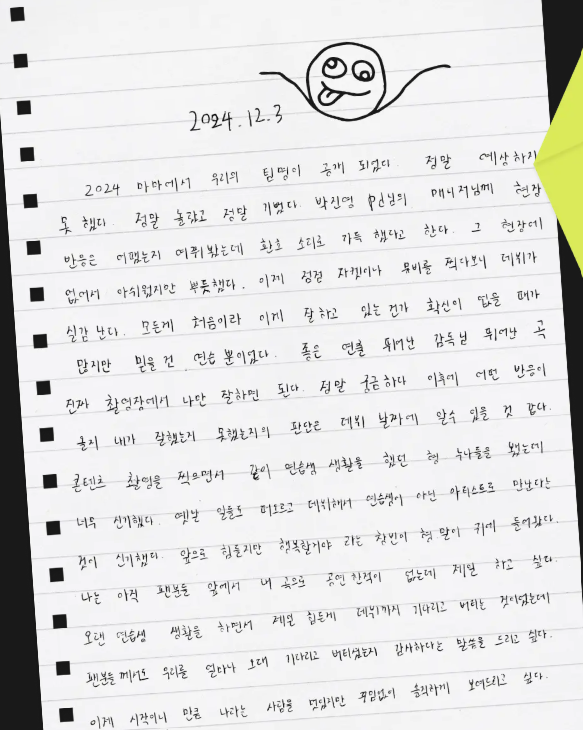 2024.12.3
2024 마마에서 우리의 팀명이 공개 되었다. 정말 예상하지
못 했다. 정말 놀랐고 정말 기뻤다. 박진영 pd님의 매니저님께 현장
반응은 어땠는지 여쭤봤는데 환호 소리로 가득 했다고 한다. 그 현장에
없어서 아쉬웠지만 뿌듯했다. 이제 점점 자켓이나 뮤비를 찍다보니 데뷔가
실감 난다. 모든게 처음이라 이게 잘하고 있는건가 확신이 없을 때가
많지만 믿을 건 연습 뿐이었다. 좋은 연출 뛰어난 감독님 뛰어난 곡
진짜 촬영장에서 나만 잘하면 된다. 정말 궁금하다 이후에 어떤 반응이
올지 내가 잘했는지 못했는지의 판단은 데뷔 날짜에 알수 있을 것 같다.
콘텐츠 촬영을 찍으면서 같이 연습생 생활을 했던 형 누나들을 봤는데
너무 신기했다. 옛날 일들도 떠오르고 데뷔해서 연습생이 아닌 아티스트로 만난다는
것이 신기했다. 앞으로 힘들지만 행복할거야 라는 창빈이 형 말이 귀에 들어왔다.
나는 아직 팬분들 앞에서 내 곡으로 공연한적이 없는데 제일 하고 싶다.
오랜 연습생 생활을 하면서 제일 힘든게 데뷔까지 기다리고 버티는 것이었는데
팬분들께서도 우리를 얼마나 오래 기다리고 버티셨는지 감사하다는 말씀을 드리고 싶다.
이제 시작이니 만큼 나라는 사람을 멋있지만 꾸밈없이 솔직하게 보여드리고 싶다.